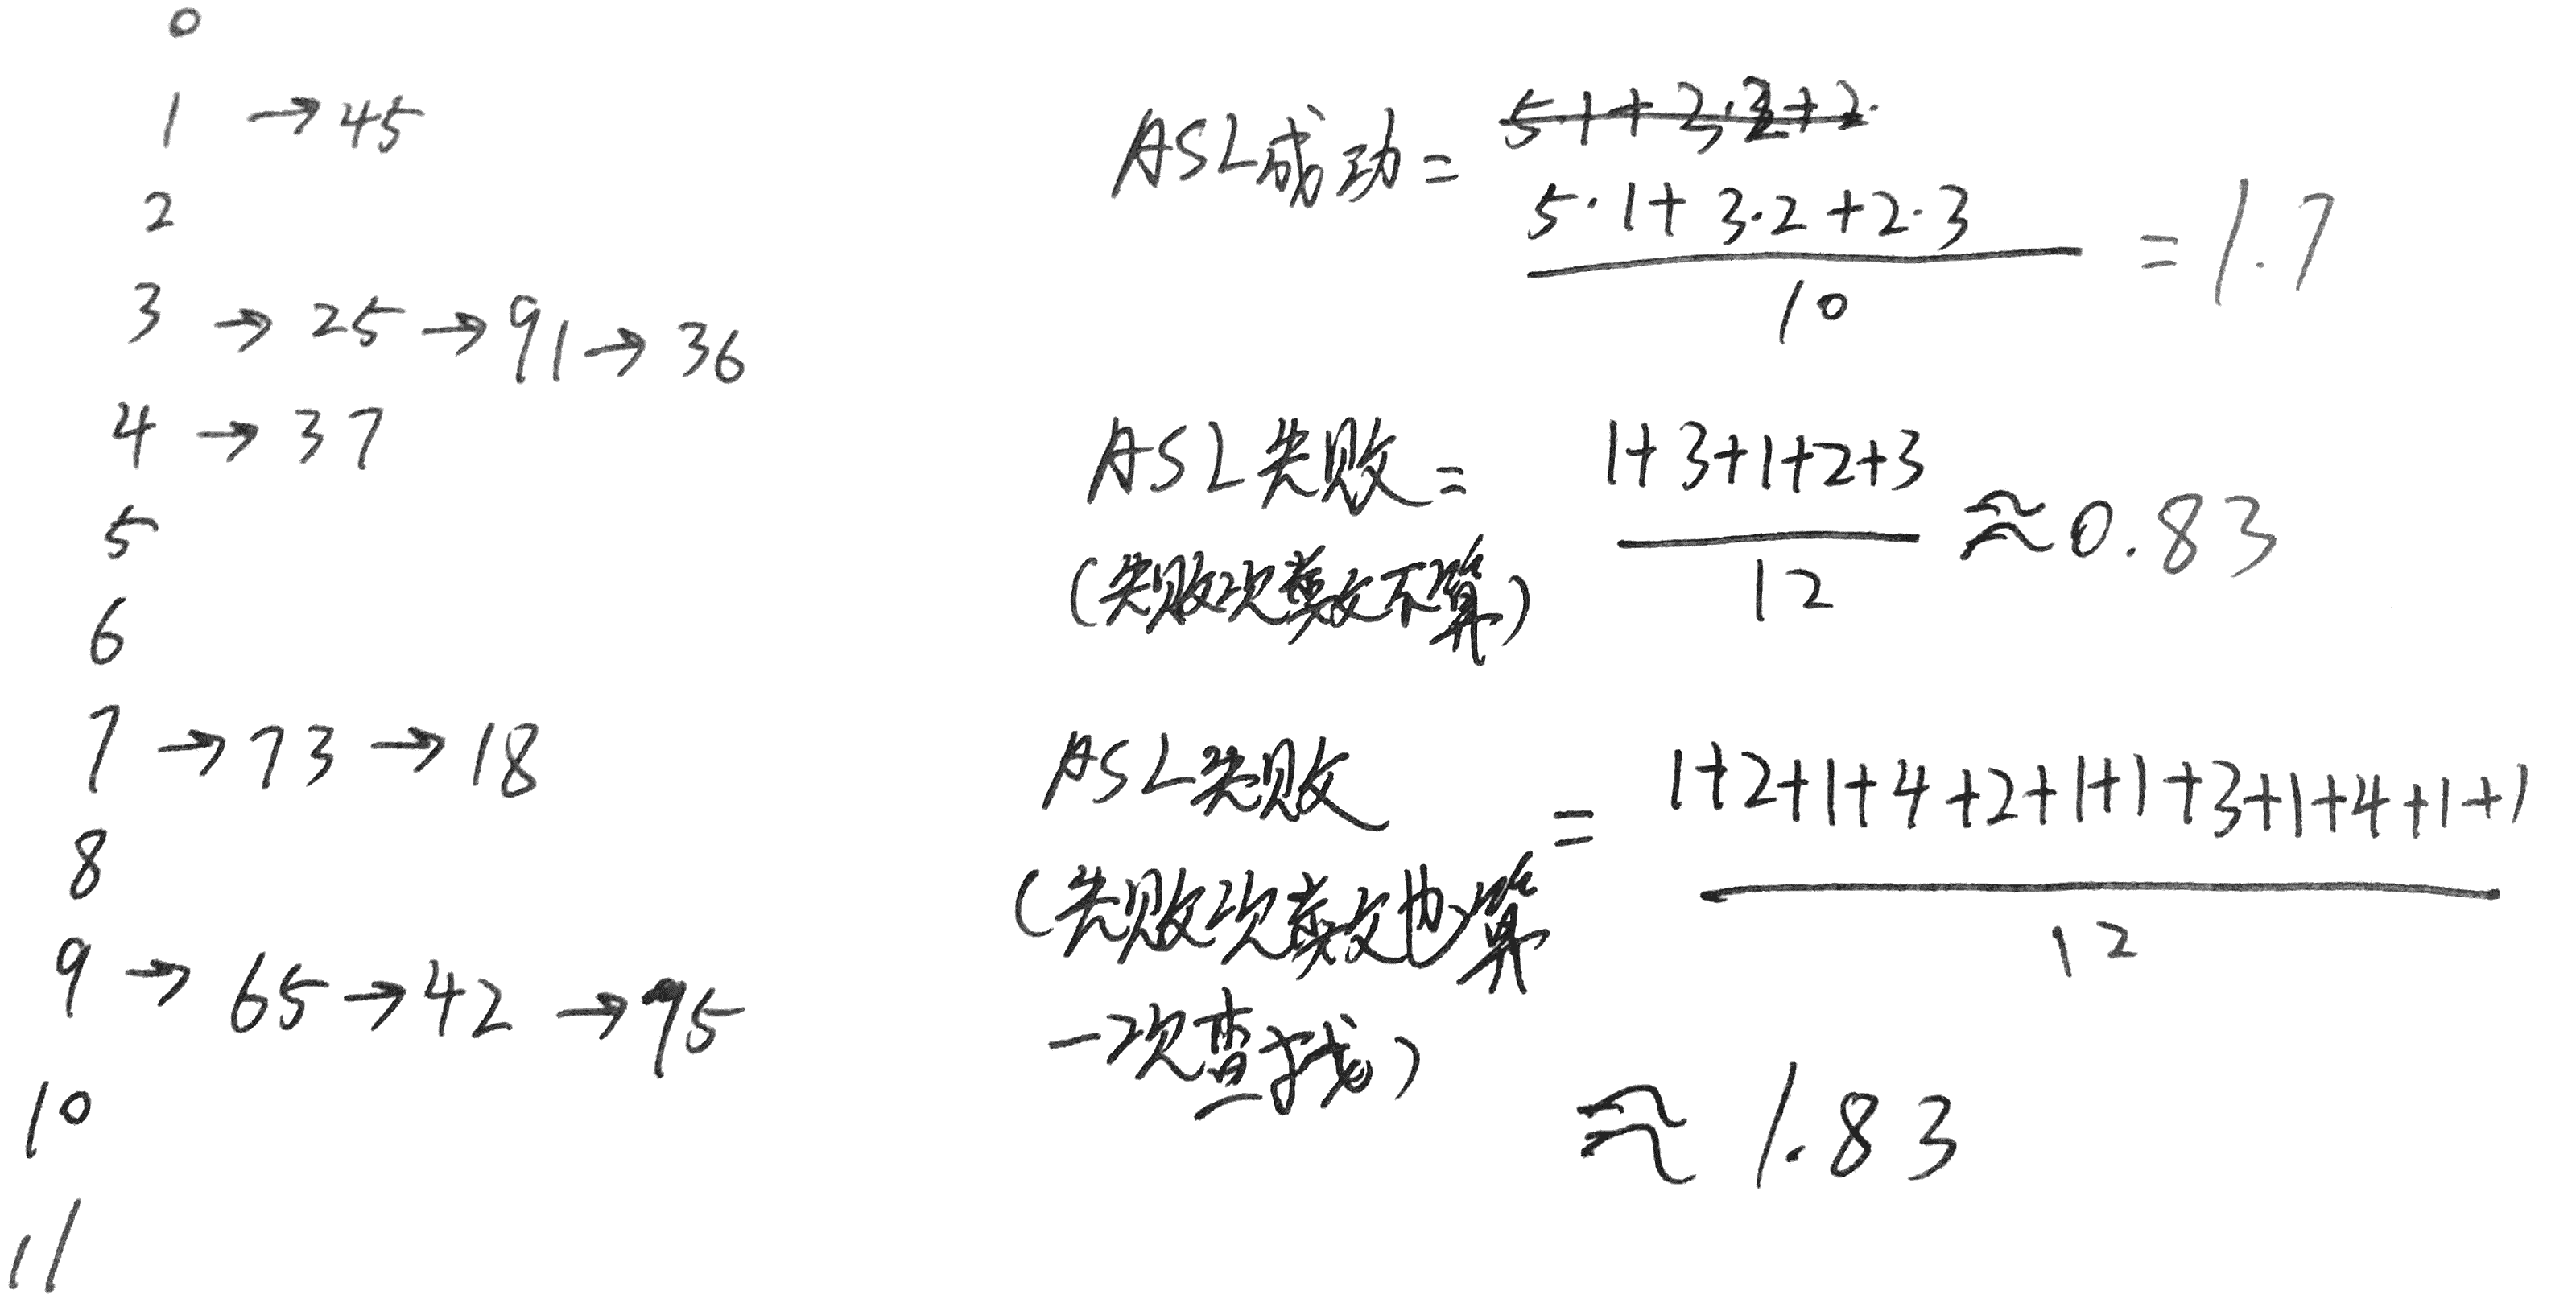 0
1 → 45
2
3 → 25 → 91 → 36
4 → 37
5
6
7 → 73 → 18
8
9 → 65 → 42 → 95
10
11
ASL成功 =
5·1+3·2+2·
5·1+3·2+2·3
10
= 1.7
ASL失败 =
(失败次数不算)
1+3+1+2+3
12
≈ 0.83
ASL失败
(失败次数也算
一次查找)
=
1+2+1+4+2+1+1+3+1+4+1+1
12
≈ 1.83